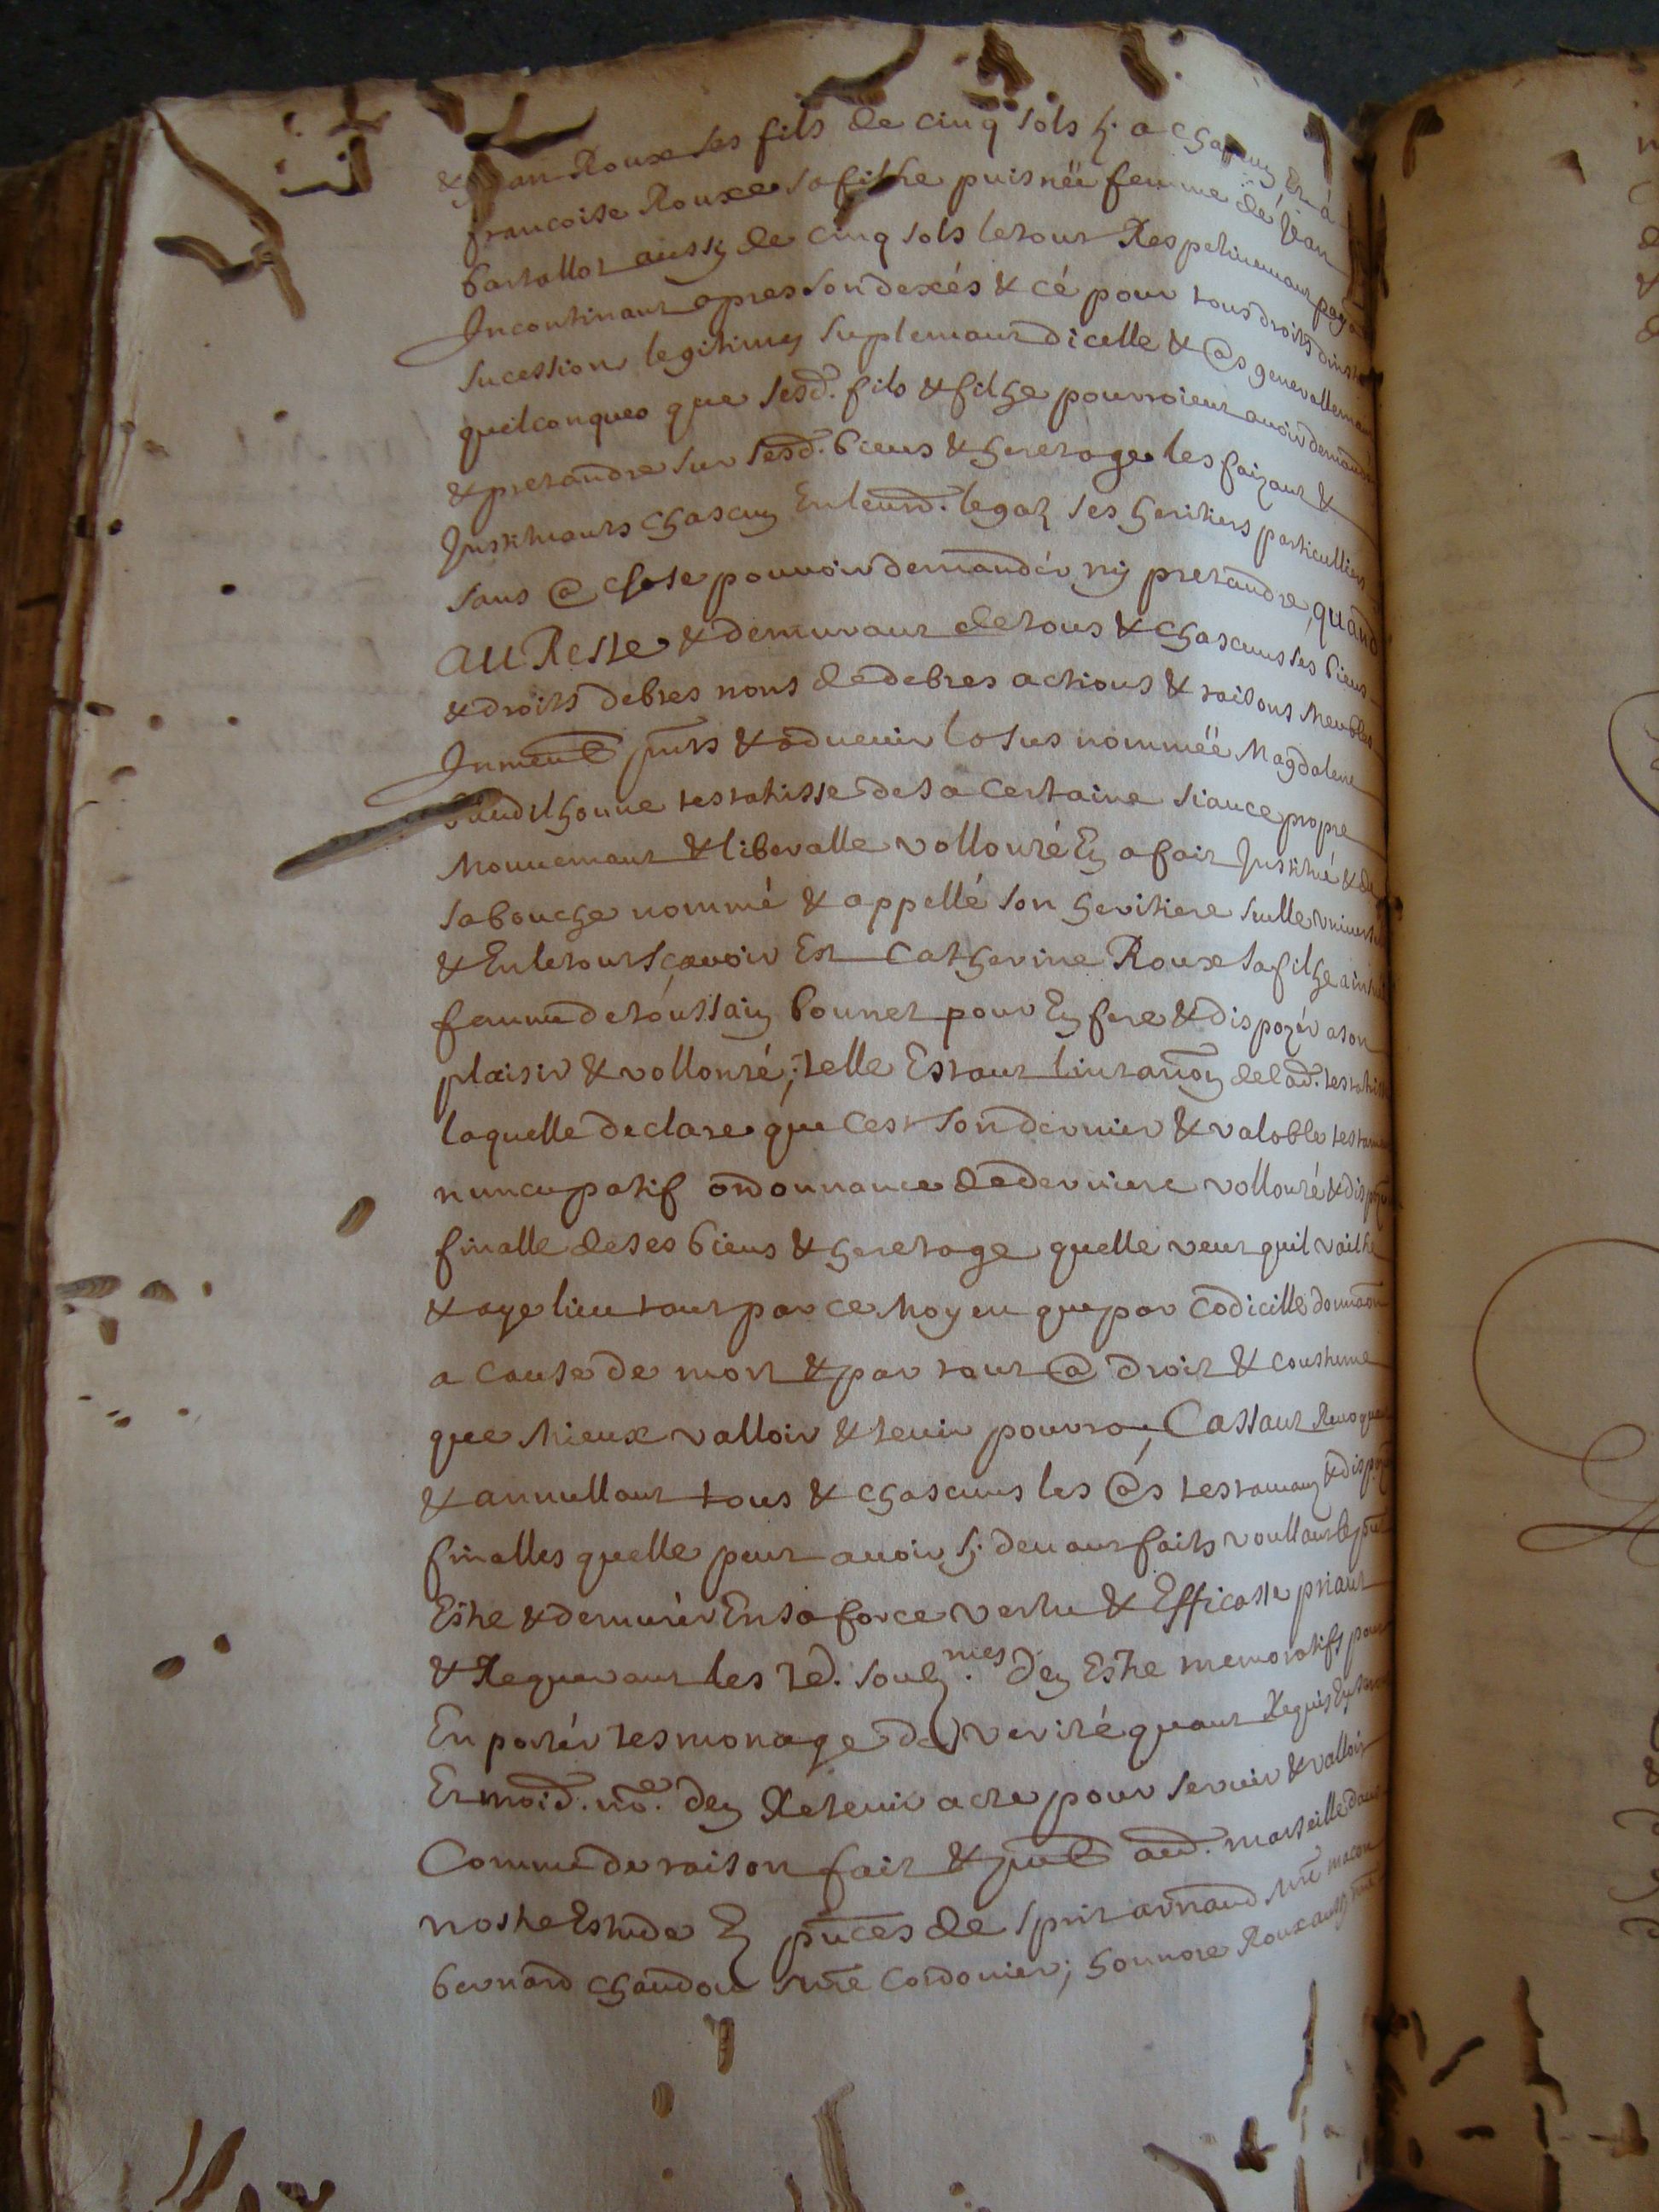 & Jean Roux ses fils de cinq sols chascung Et a
francoise Rouxe sa filhe puisnéé femme dé Jean
bartallot aussy de cinq sols letout Respetivemant paya
Incontinant apres son dexés & cé pour tous droits dinst
sucession legitimes suplemant dicelle & @s generallemant
quelconques que sesd. fils & filhe pourroient avoir demander
& pretandre sur sesd. biens & heretage les faizant &
Instituants chascung En leurd. legat ses heritiers particulliers
sans @ chose pouvoir demandér ny pretandre, quand
AU Reste & demurant de tous & chascuns ses biens
& droits debtes noms dedebtes actions & raisons meubles
Inmeub pnts & advenir la sus nomméé Magdalene
testatrisse de sa certaine siance propre
mouvemant & liberalle vollonté En a fait Institué & de
sa bouche nommé & appellé son heritiere sulle universelle
& En le tout sçavoir Est Catherine Roux sa filhe
femme de toussain bonnet pour En fere & dispozér a son
plaisir & vollonté; telle Estant lintanon delad. testatrisse
laquelle declare que cest son dernier & valable testamant
nuncupatif ordonnance de derniere vollonté & dispon
finalle de ses biens & heretage quelle veut quil vailhe
& aye lieu tant par ce moyen que par codicille donnaon
a cause de mort & par tout @ droit & coustume
que mieux valloir & tenir pourra, Cassant Revoquant
& annullant tous & chascuns les @s testamans & dispons
finalles quelle peut avoir sy devant faits voullant le pnt
Estre & demurér En sa force vertu & Efficasse priant
& Requerant les td. soubz.nes den Estre memoratifs pour
En portér tesmonage de verité quant Requis En seront
Et moid. no.e den Retenir acte pour servir & valloir
Comme de raison fait & pub aud. marseille dans
nostre Estude En pnces de sprit arnaud mre macon
bernard chaudon mre cordonier; honnore Roux